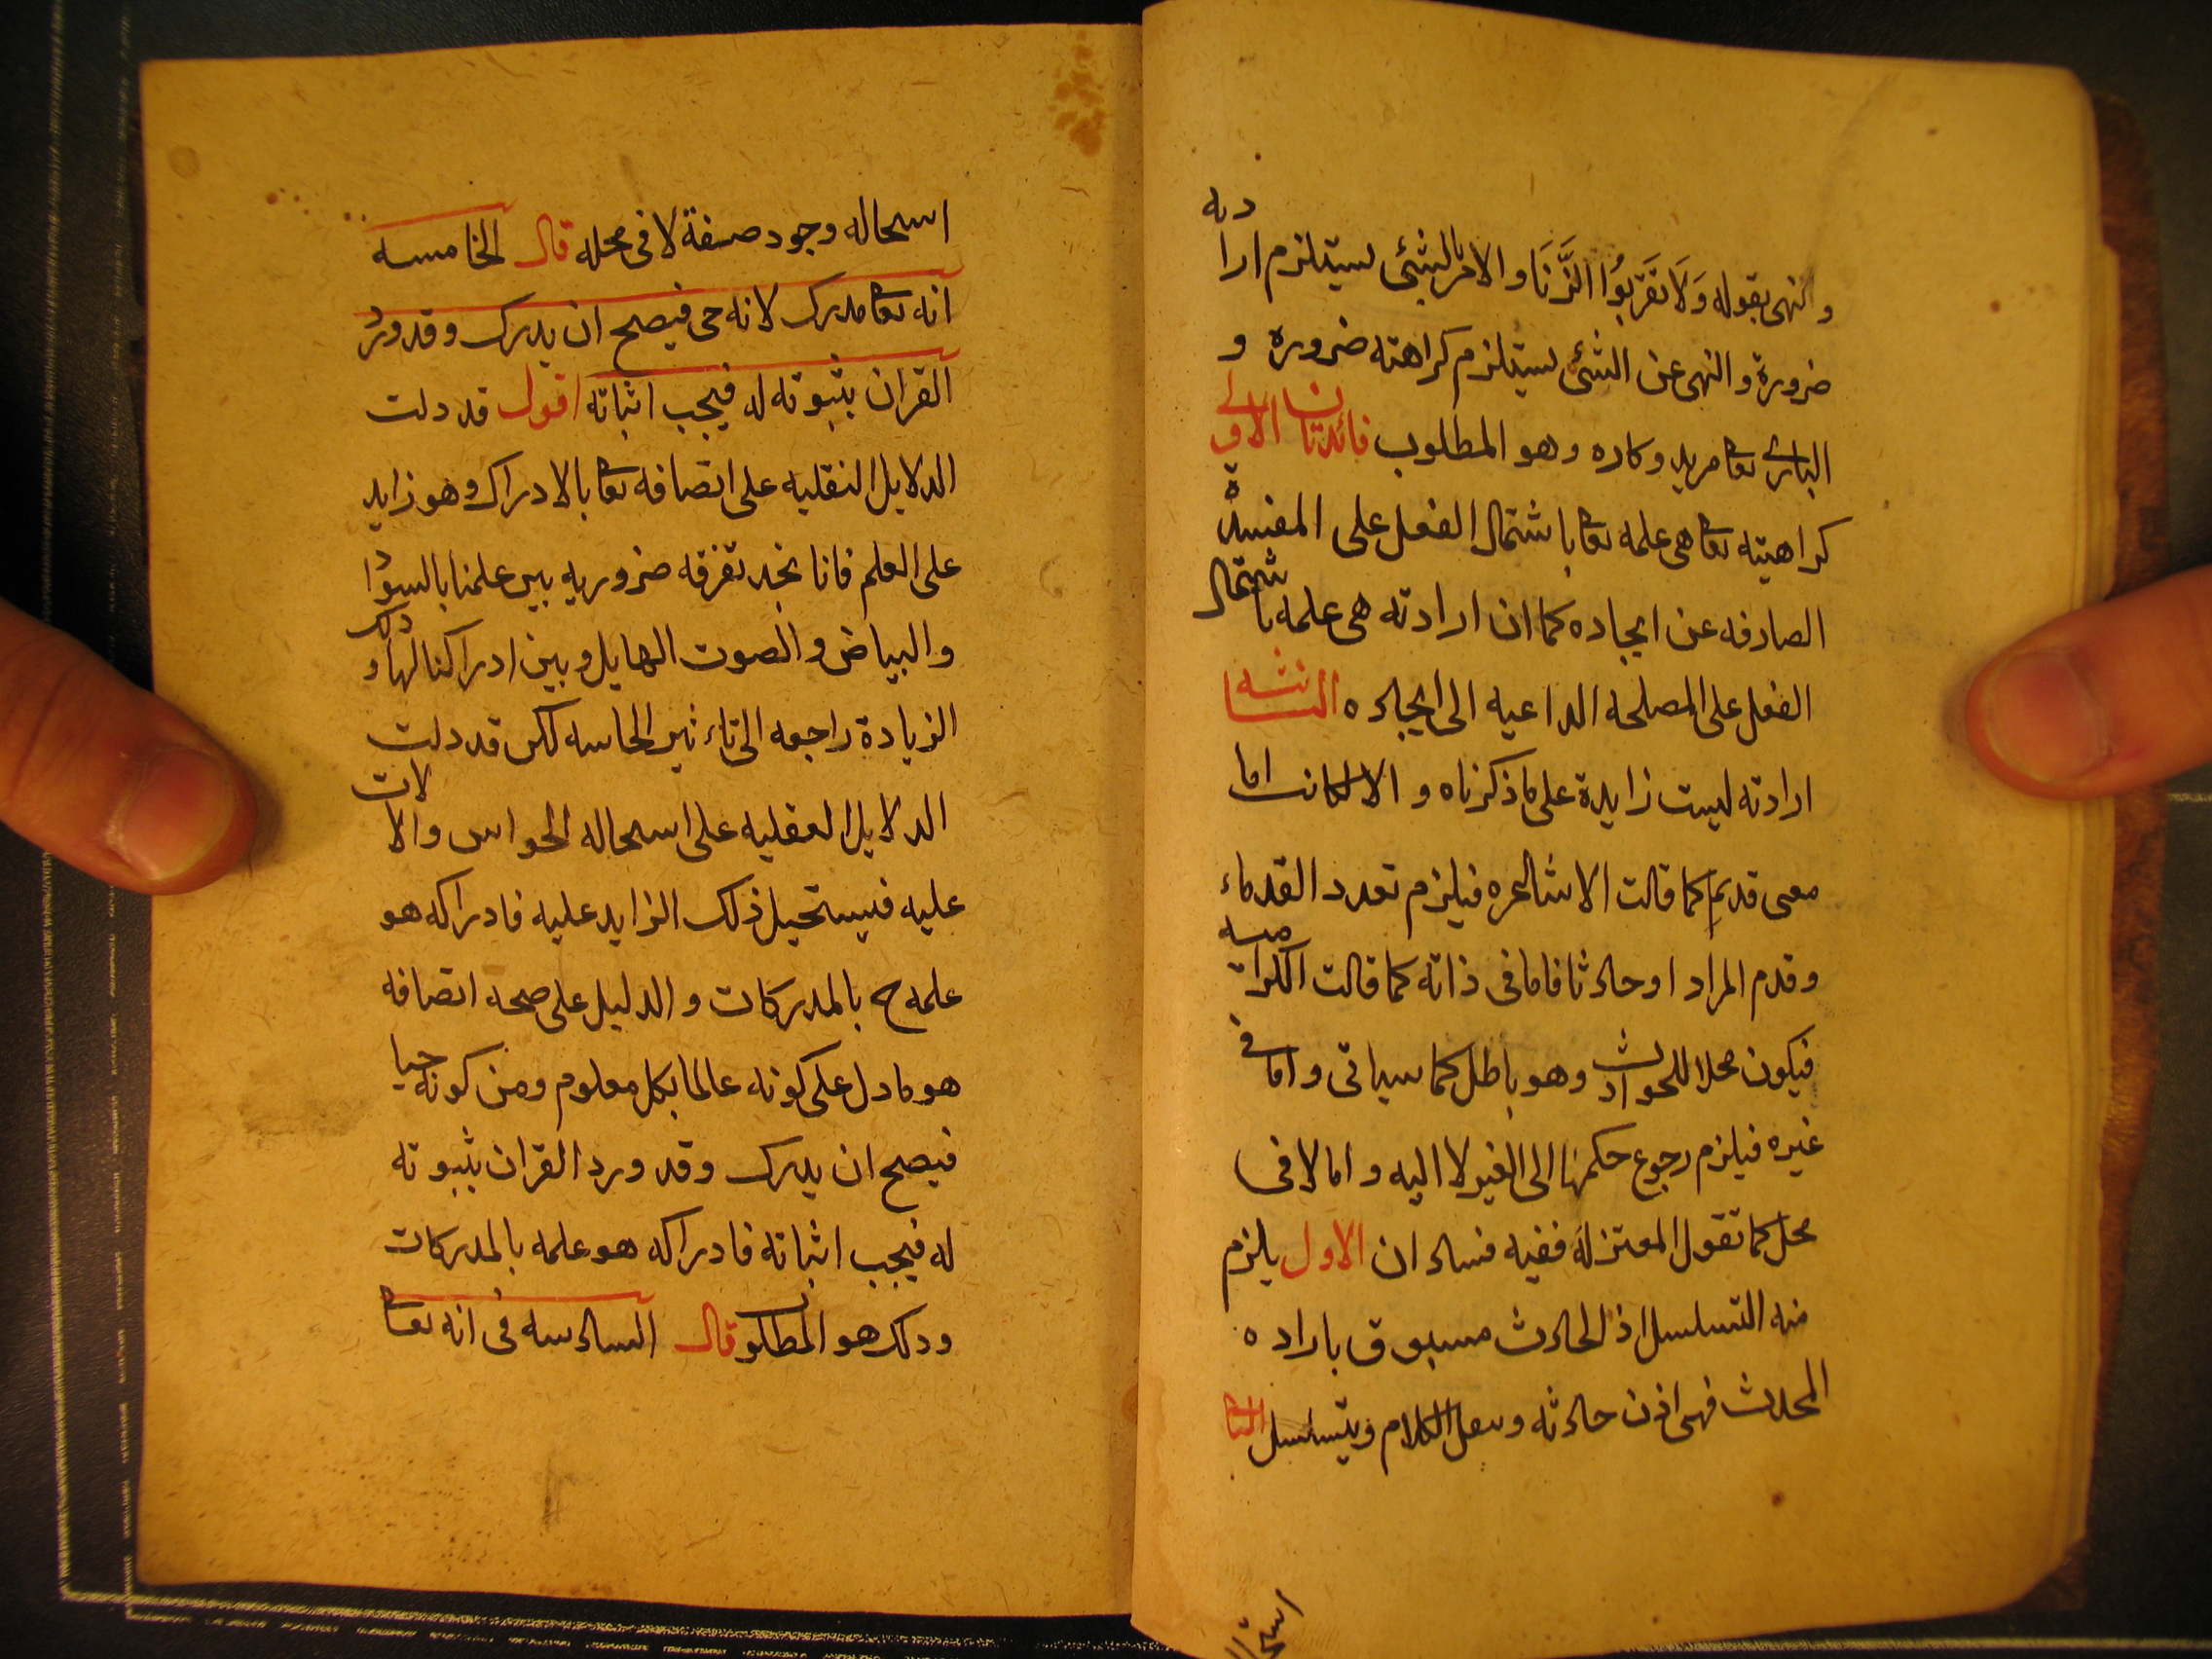 ونهى بقوله وَلَا تَقرَبوُا الزَّنَا والامر بالشئ يستلزم ارادته
ضرورة والنهى عن الشئ يستلزم كراهته ضروره و
البارى تعا مريد وكاره وهو المطلوب فائدتان الاولى
كراهيته تعا هى علمه تعا باشتمال الفعل على المفسدة
الصارفه عن ايجاده كما ان ارادته هى علمه باشتمال
الفعل على المصلحه الداعيه الى ايجاده الثانيه
ارادته ليست زايدة على ما ذكرناه والا لكانت اما
معنى قديم كما قالت الاشاعره فيلزم تعدد القدماء
وقدم المراد او حادثا فاما فى ذاته كما قالت الكراميه
فيكون محلا للحوادث وهو باطل كما سياتى واما فى
غيره فيلزم رجوع حكمها الى الغير لا اليه واما لا فى
محل كما تقول المعتزلة ففيه فسادان الاول يلزم
منه التسلسل اذ الحادث مسبوق باراده
المحدث فهى اذن حادثه وينقل الكلام ويتسلسل الثانى
استحاله
اسحاله وجود صفة لا فى محله قال الخامسه
انه تعا مدرك لانه حى فيصح ان يدرك وقد ورد
القران بثبوته له فيجب اثباته اقول قد دلت
الدلايل النقليه على اتصافه تعا بالادراك وهو زايد
على العلم فانا نجد تفرقه ضروريه بين علمنا بالسواد
والبياض والصوت الهايل وبين ادراكنا لها وذلك
الزيادة راجعه الى تاثير الحاسه لكن قد دلت
الدلايل العقليه على اسحاله الحواس والالات
عليه فيستحيل ذلك الزايد عليه فادراكه هو
علمه ح بالمدركات والدليل على صحه اتصافه
هو ما دل على كونه عالما بكل معلوم ومن كونه حيا
فيصح ان يدرك وقد ورد القران بثبوته
له فيجب اثباته فادراكه هو علمه بالمدركات
وذلك هو المطلوب قال السادسه فى انه تعا